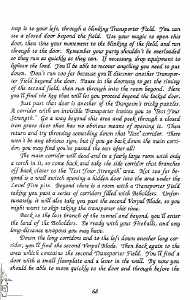 step is to your left, through a Blinking Transporter Field. You can
see a closed door beyond the field. Use your magic to open this
door, then time your movement to the blinking of the field, and run
through to the door. Remember your party shouldn't be overloaded
so they run as quickly as they can. If necessary, drop equipment to
lighten the load. You'll be able to recover anything you need to put
down. Don't run too far because you'll discover another Transporter
Field beyond the door. Pause in the doorway to get the timing
of the second field, then run through into the room beyond. Here
you'll find the key that will let you proceed beyond the locked door.
Just past that door is another of the Dungeon's tricky puzzles.
A corridor with an invisible Transporter inviting you to "Test Your
Strength." Go a way beyond this area and peek through a closed
iron grate door that has no obvious means of opening it. Then
return and try throwing something down that "Test" corridor. There
won't be any obvious sign, but if you go back down the main corridor
you may find you've passed the test after all!
The main corridor will dead end in a fairly large room with only
a torch in it, so come back and take the side corridor that branches
off back closer to the "Test Your Strength" area. Not too far beyond
is a wall switch opening a hidden door into the area under the
Level Five pits. Beyond there is a room with a Transporter Field
taking you past a series of corridors filled with Beholders.
it will also take you past the second Vorpal Blade, so you
might want to skip taking the transporter shortcut.
Back in the last branch of the tunnel and beyond, you'll enter
the land of the Beholders. Be ready with your Fireballs, and any
long-distance weapons you may have.
Down the long corridors and to the left down another long corridor,
you'll find the second Vorpal Blade. Then back again to the
area which contains the second Transporter Field. You'll find a
door with a small fireplace and a door in the wall. By now you
should be able to move quickly to the door and through before the
68